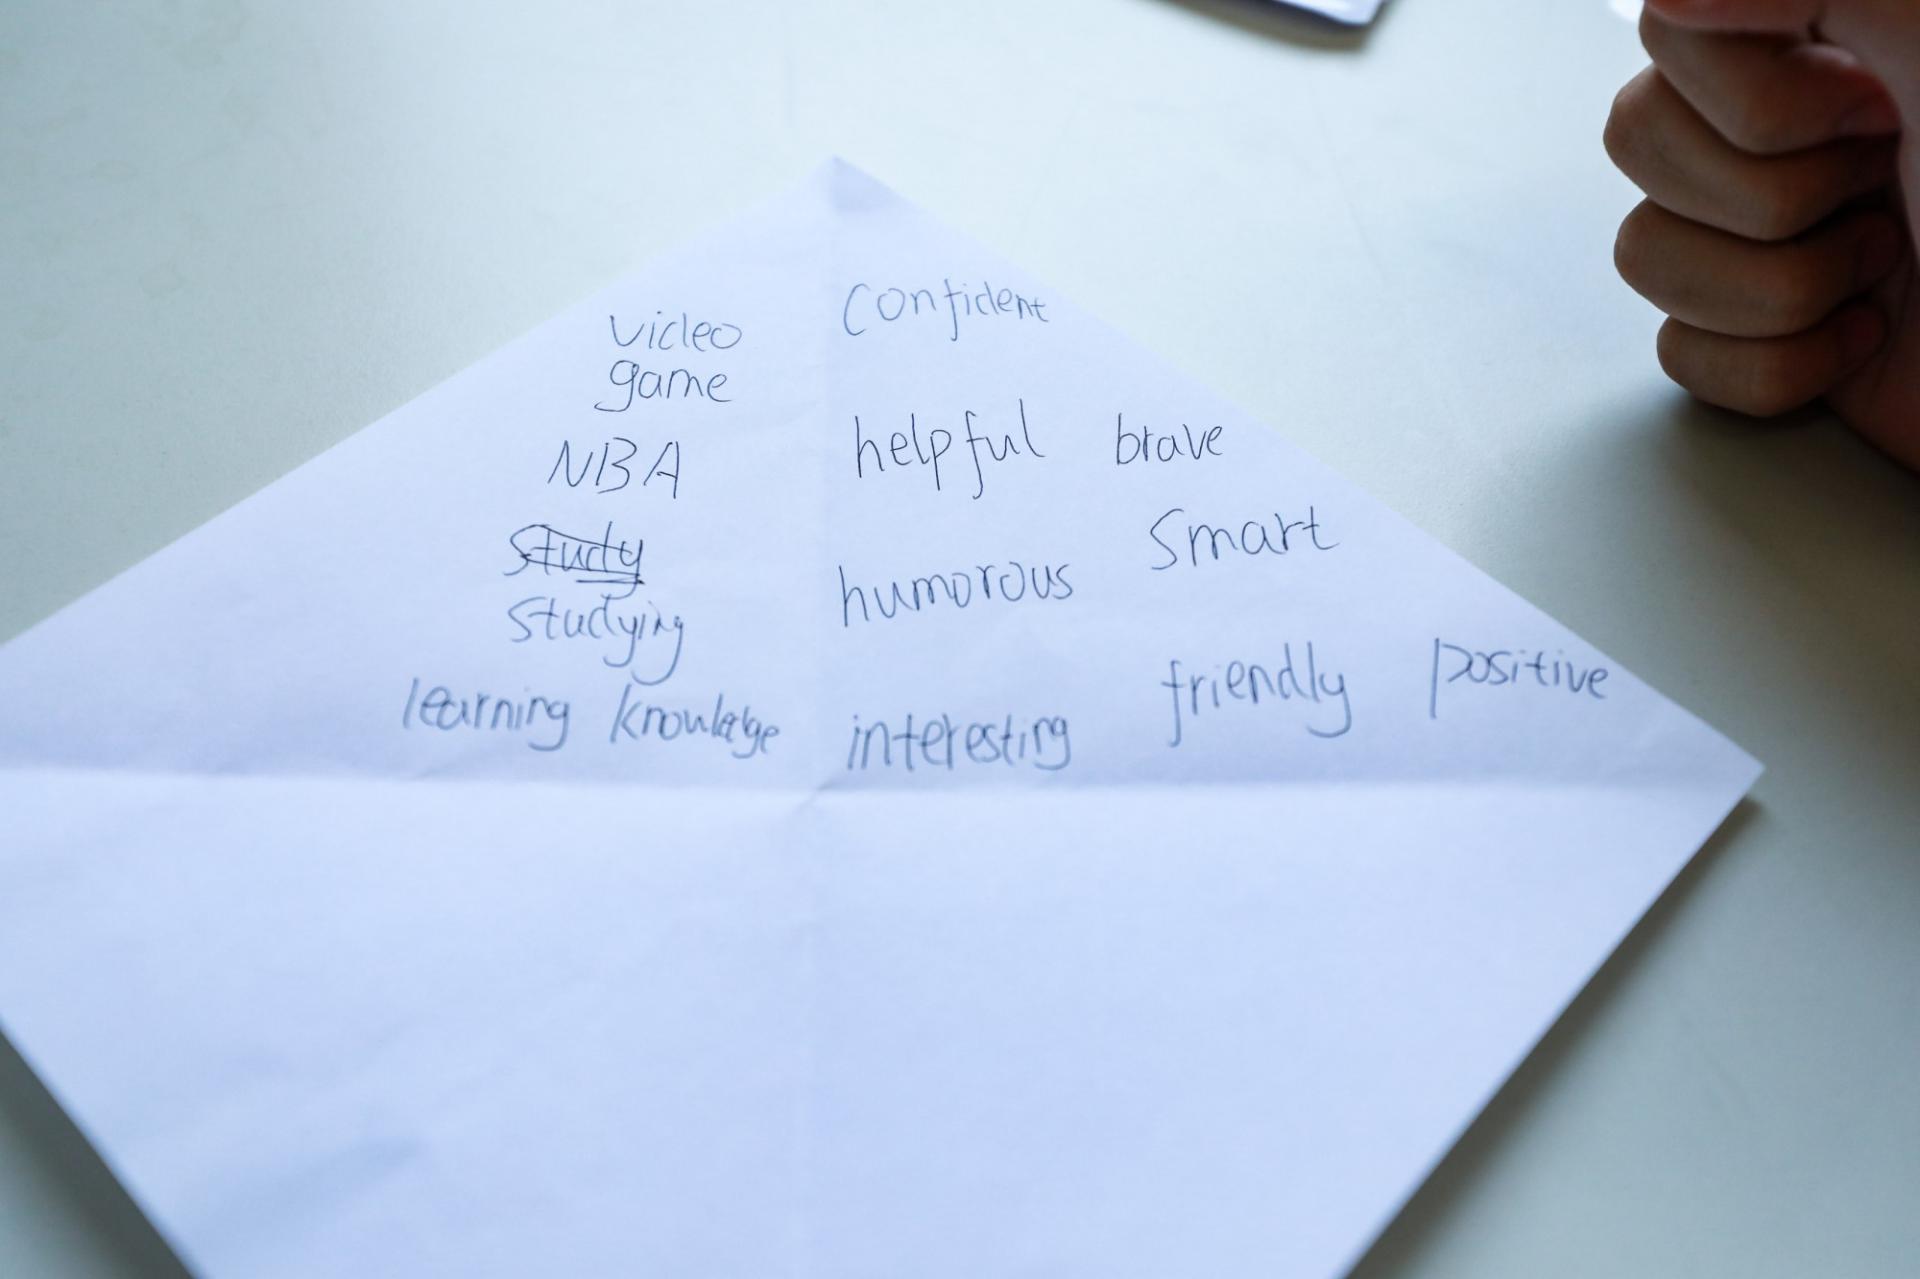 video
game
NBA
study
studying
learning knowledge
confident
helpful brave
humorous smart
interesting friendly positive